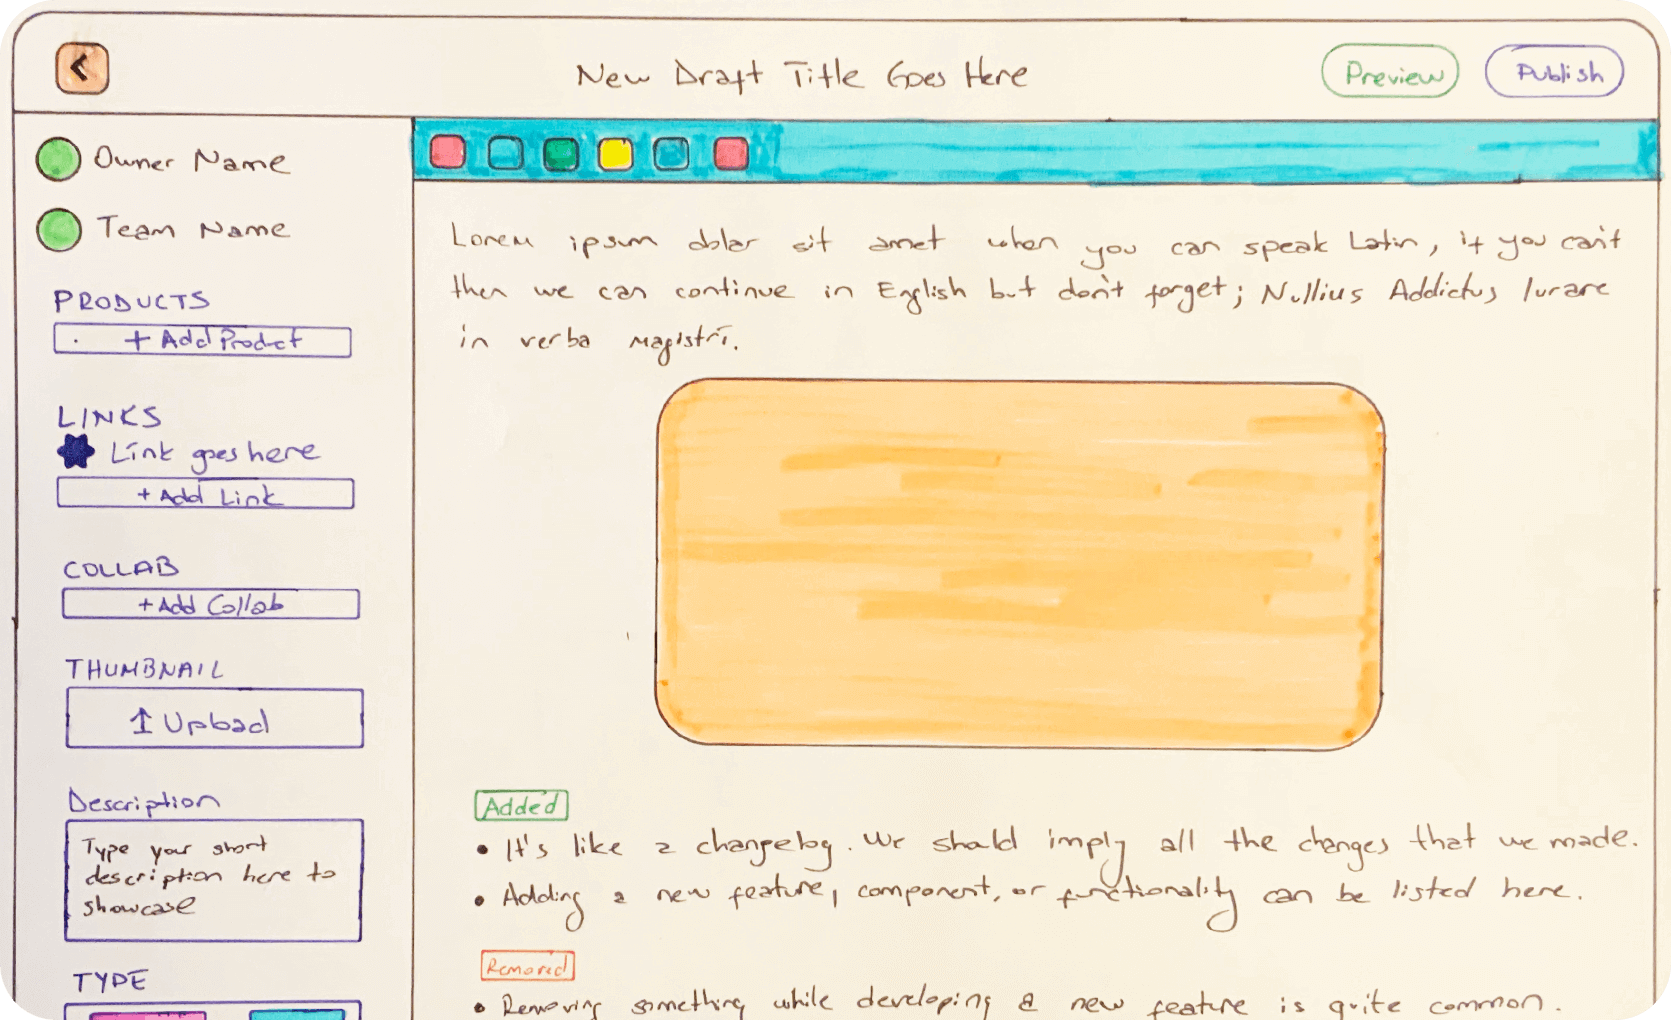 New Draft Title Goes Here
Preview
Publish
Owner Name
Team Name
PRODUCTS
+ Add Product
LINKS
Link goes here
+ Add Link
COLLAB
+ Add Collab
THUMBNAIL
↑ Upload
Description
Type your short
description here to
showcase
TYPE
Lorem ipsum dolar sit amet when you can speak Latin, if you can't
then we can continue in English but don't forget; Nullius Addictus Iurare
in verba magistri.
Added
• It's like a changelog. We should imply all the changes that we made.
• Adding a new feature, component, or functionality can be listed here.
Removed
• Removing something while developing a new feature is quite common.